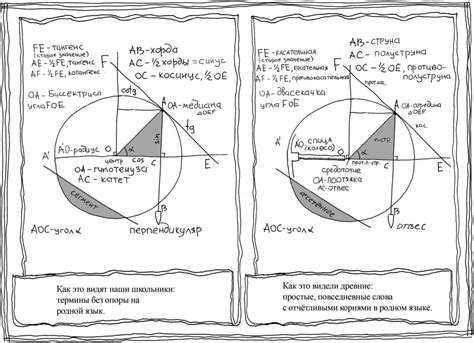 FE-тангенс
(старое значение)
AE-½FE, тангенс
AF-½FE, котангенс
AB-хорда
AC-½хорды=синус
OC-косинус, ½OE
OA-биссектриса
угла FOE
F
cotg
A
OA-медиана
△OEF
tg
A'
A'O-радиус
O
α
sin
центр
cos
C
E
OA-гипотенуза
AC-катет
сегмент
B
AOC-угол α
перпендикуляр
Как это видят наши школьники:
термины без опоры на
родной язык.
FE-касательная
(старое значение)
AE-½FE, касательная
AF-½FE, противокасательная
AB-струна
AC-полуструна
OC-½OE, противо-
полуструна
OA-двусекачка
угла FOE
F
A
OA-середина
△OEF
кас.
A'
A'O-спица
O
α
п-стр.
прот.п-стр.
C
E
средоточие
OA-подтяжка
AC-отвес
отсечение
B
AOC-угол α
отвес
Как это видели древние:
простые, повседневные слова
с отчётливыми корнями в родном языке.